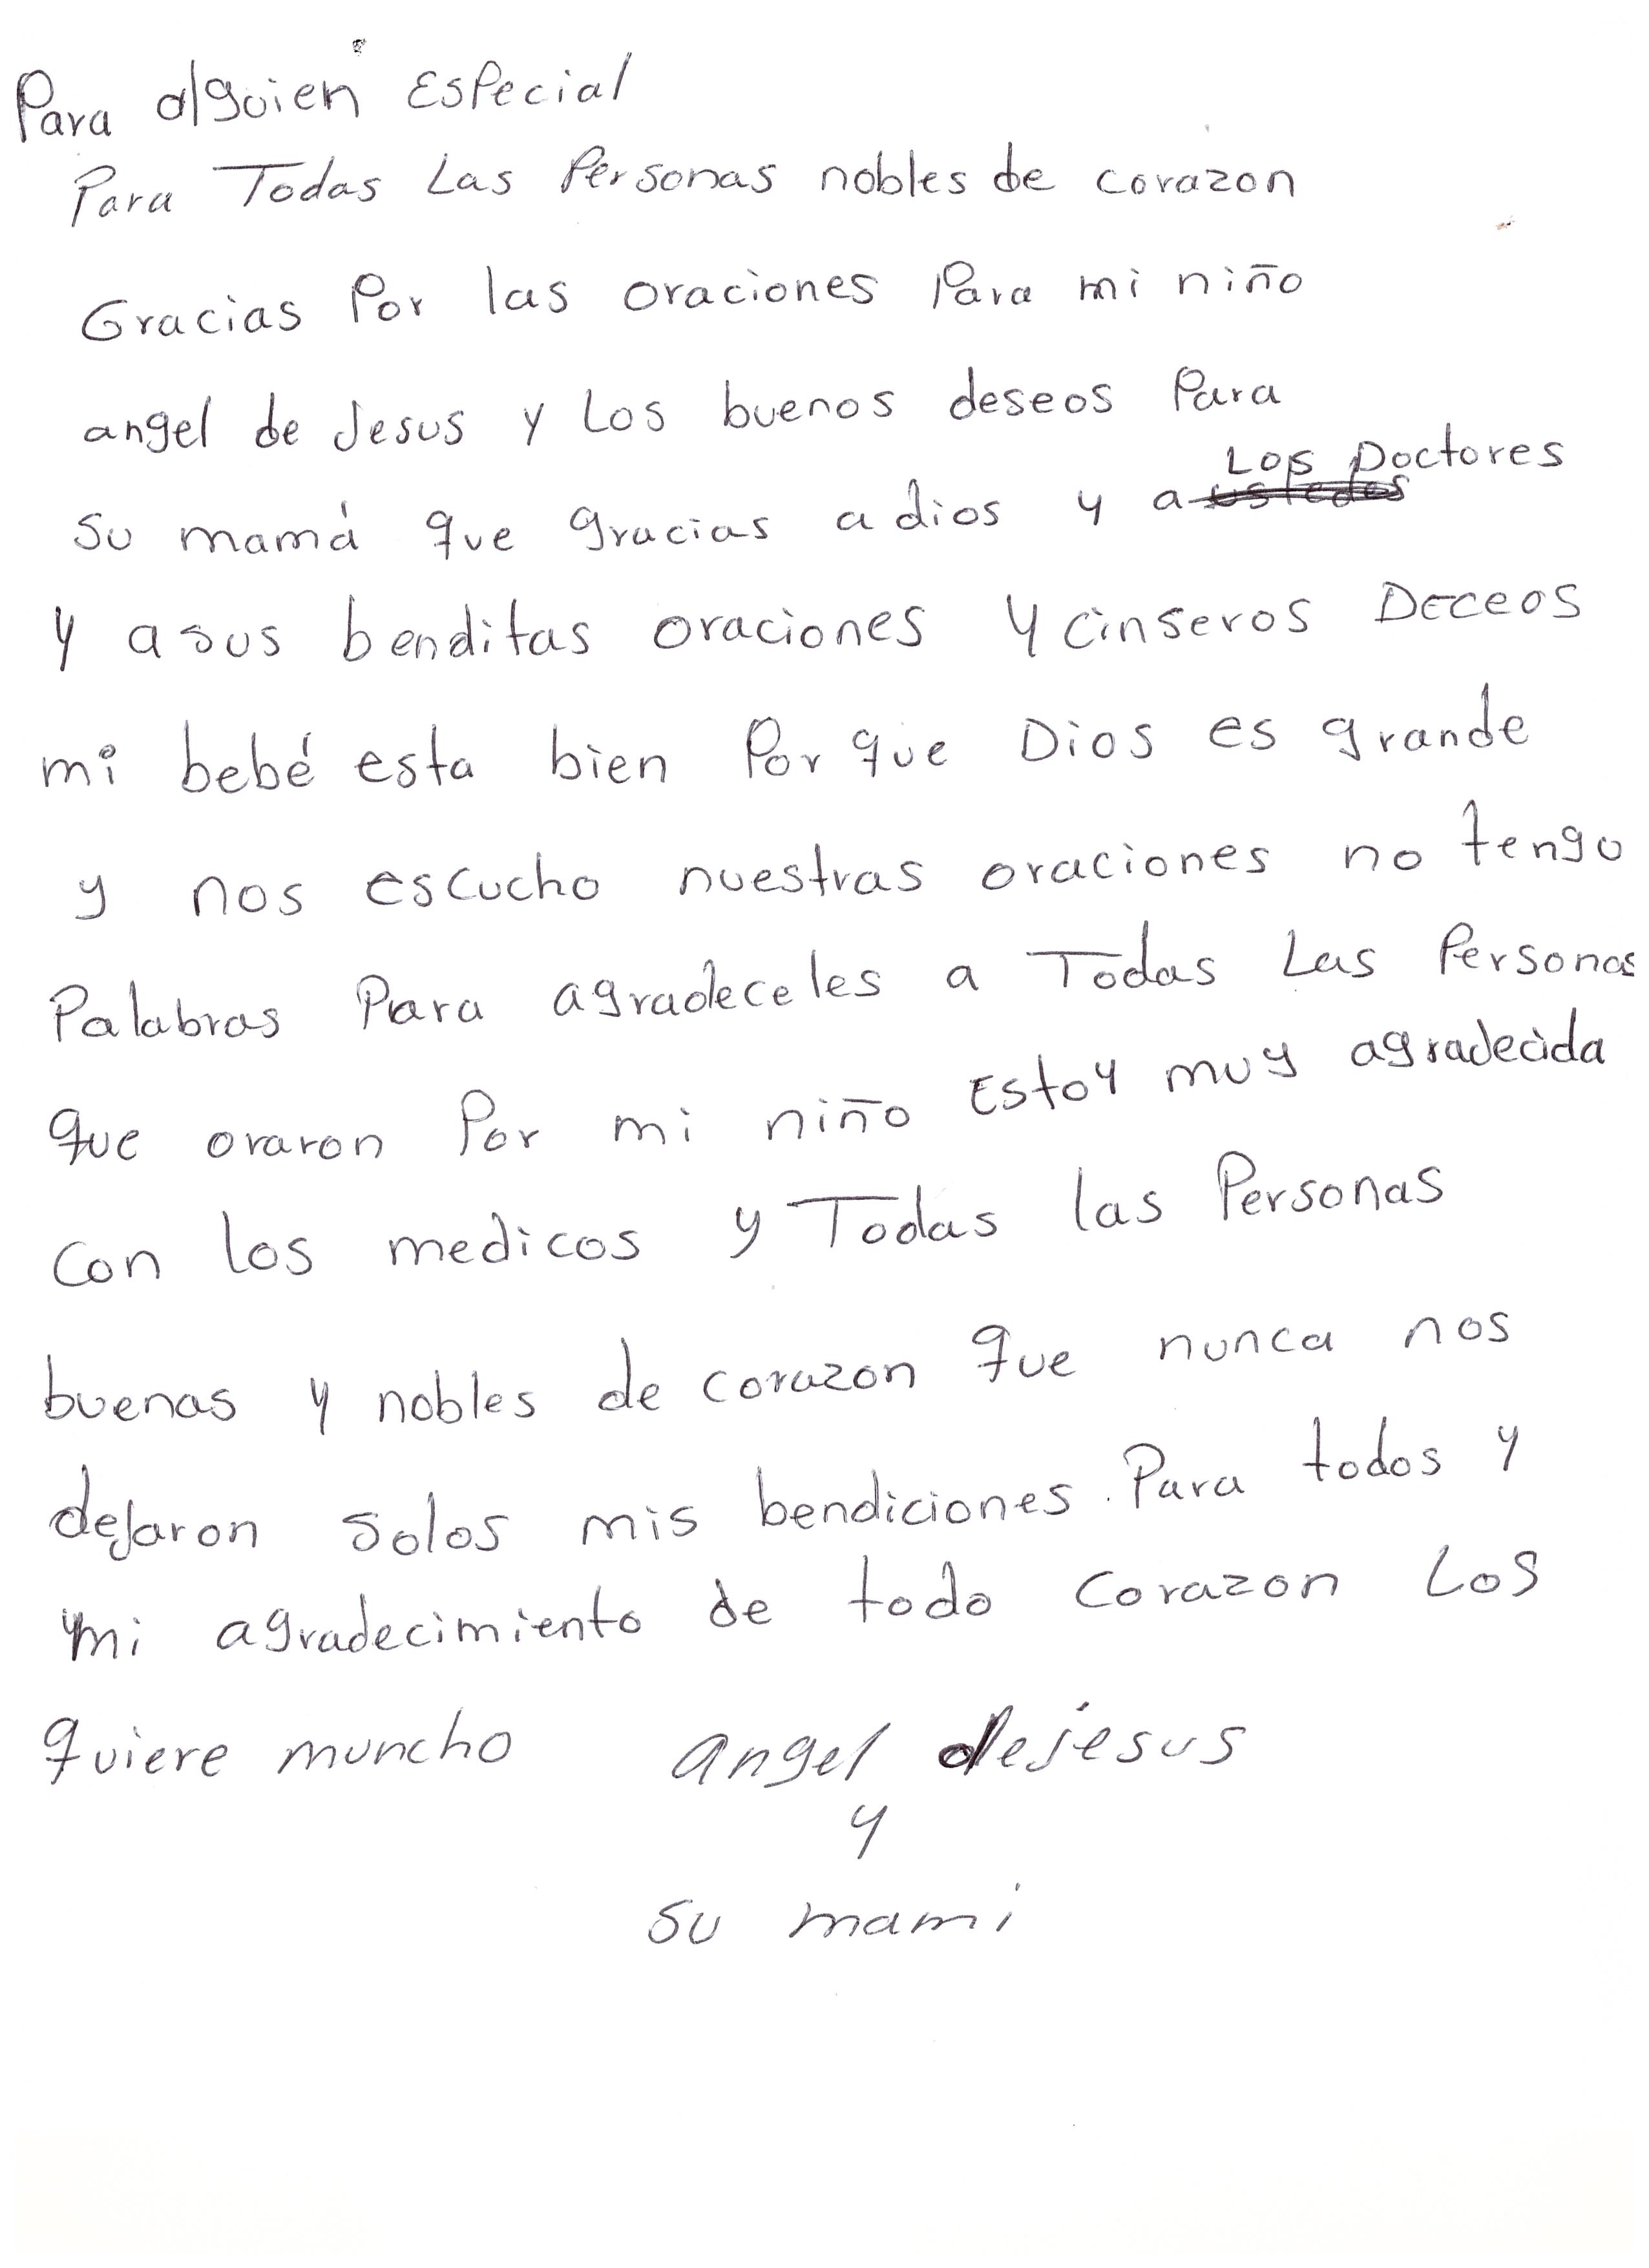 Para alguien Especial
Para Todas Las Personas nobles de corazon
Gracias Por las oraciones Para mi niño
angel de Jesus y Los buenos deseos Para
su mamá que gracias a dios y a ustedes Los Doctores
y a sus benditas oraciones y cinseros Deceos
mi bebé esta bien Por que Dios es grande
y nos escucho nuestras oraciones no tengo
Palabras Para agradeceles a Todas Las Personas
que oraron Por mi niño Estoy muy agradecida
con los medicos y Todas las Personas
buenas y nobles de corazon que nunca nos
deJaron solos mis bendiciones. Para todos y
mi agradecimiento de todo corazon Los
quiere muncho angel dejesus
y
su mami